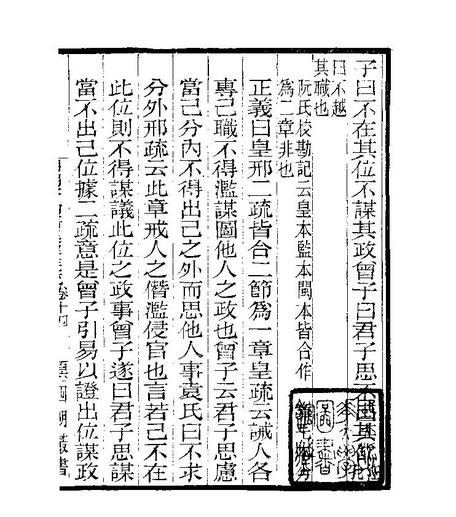 子曰不在其位不謀其政曾子曰君子思不出其
曰不越
其職也
阮氏校勘記云皇本監本閩本皆合作
為二章非也
正義曰皇邢二疏皆合二節為一章皇疏云誡人各
專己職不得濫謀圖他人之政也曾子云君子思慮
當己分內不得出己之外而思他人事袁氏曰不求
分外邢疏云此章戒人之僭濫侵官也言若己不在
此位則不得謀議此位之政事曾子遂曰君子思謀
當不出己位據二疏意是曾子引易以證出位謀政
卷十四
四明叢書